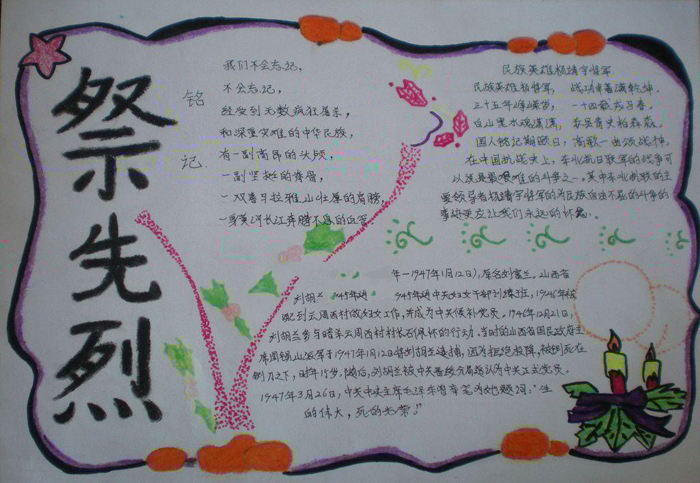 祭先烈
铭记
我们不会忘记，
不会忘记，
经受到无数疯狂屠杀，
和深重灾难的中华民族，
有一副高昂的头颅，
一副坚挺的脊骨，
一双喜马拉雅山壮厚的肩膀
一身黄河长江奔腾不息的血
民族英雄杨靖宇将军
民族英雄杨将军，战功卓著满乾坤。
三十五年
白山黑水
国人铭记
在中国抗战史上，东北抗日联军的战事可
以说是最艰难的斗争之一。其中东北抗联的主
要领导者杨靖宇将军的为民族自由不屈的斗争的
事迹更应让我们永远的怀念。
年—1947年1月12日），原名刘富兰。山西省
刘胡兰 1945年 中共妇女干部训练班，1946年被
配到云周西村做妇女工作，并成为中共候补党员。1946年12月21日，
刘胡兰参与暗杀云周西村村长石佩怀的行动。当时的山西省国民政府主
席阎锡山派军于1947年1月12日将刘胡兰逮捕，因为拒绝投降，被铡死在
铡刀之下，时年15岁。随后，刘胡兰被中共晋绥分局追认为中共正式党员。
1947年3月26日，中共中央主席毛泽东曾亲笔为她题词：“生
的伟大，死的光荣。”